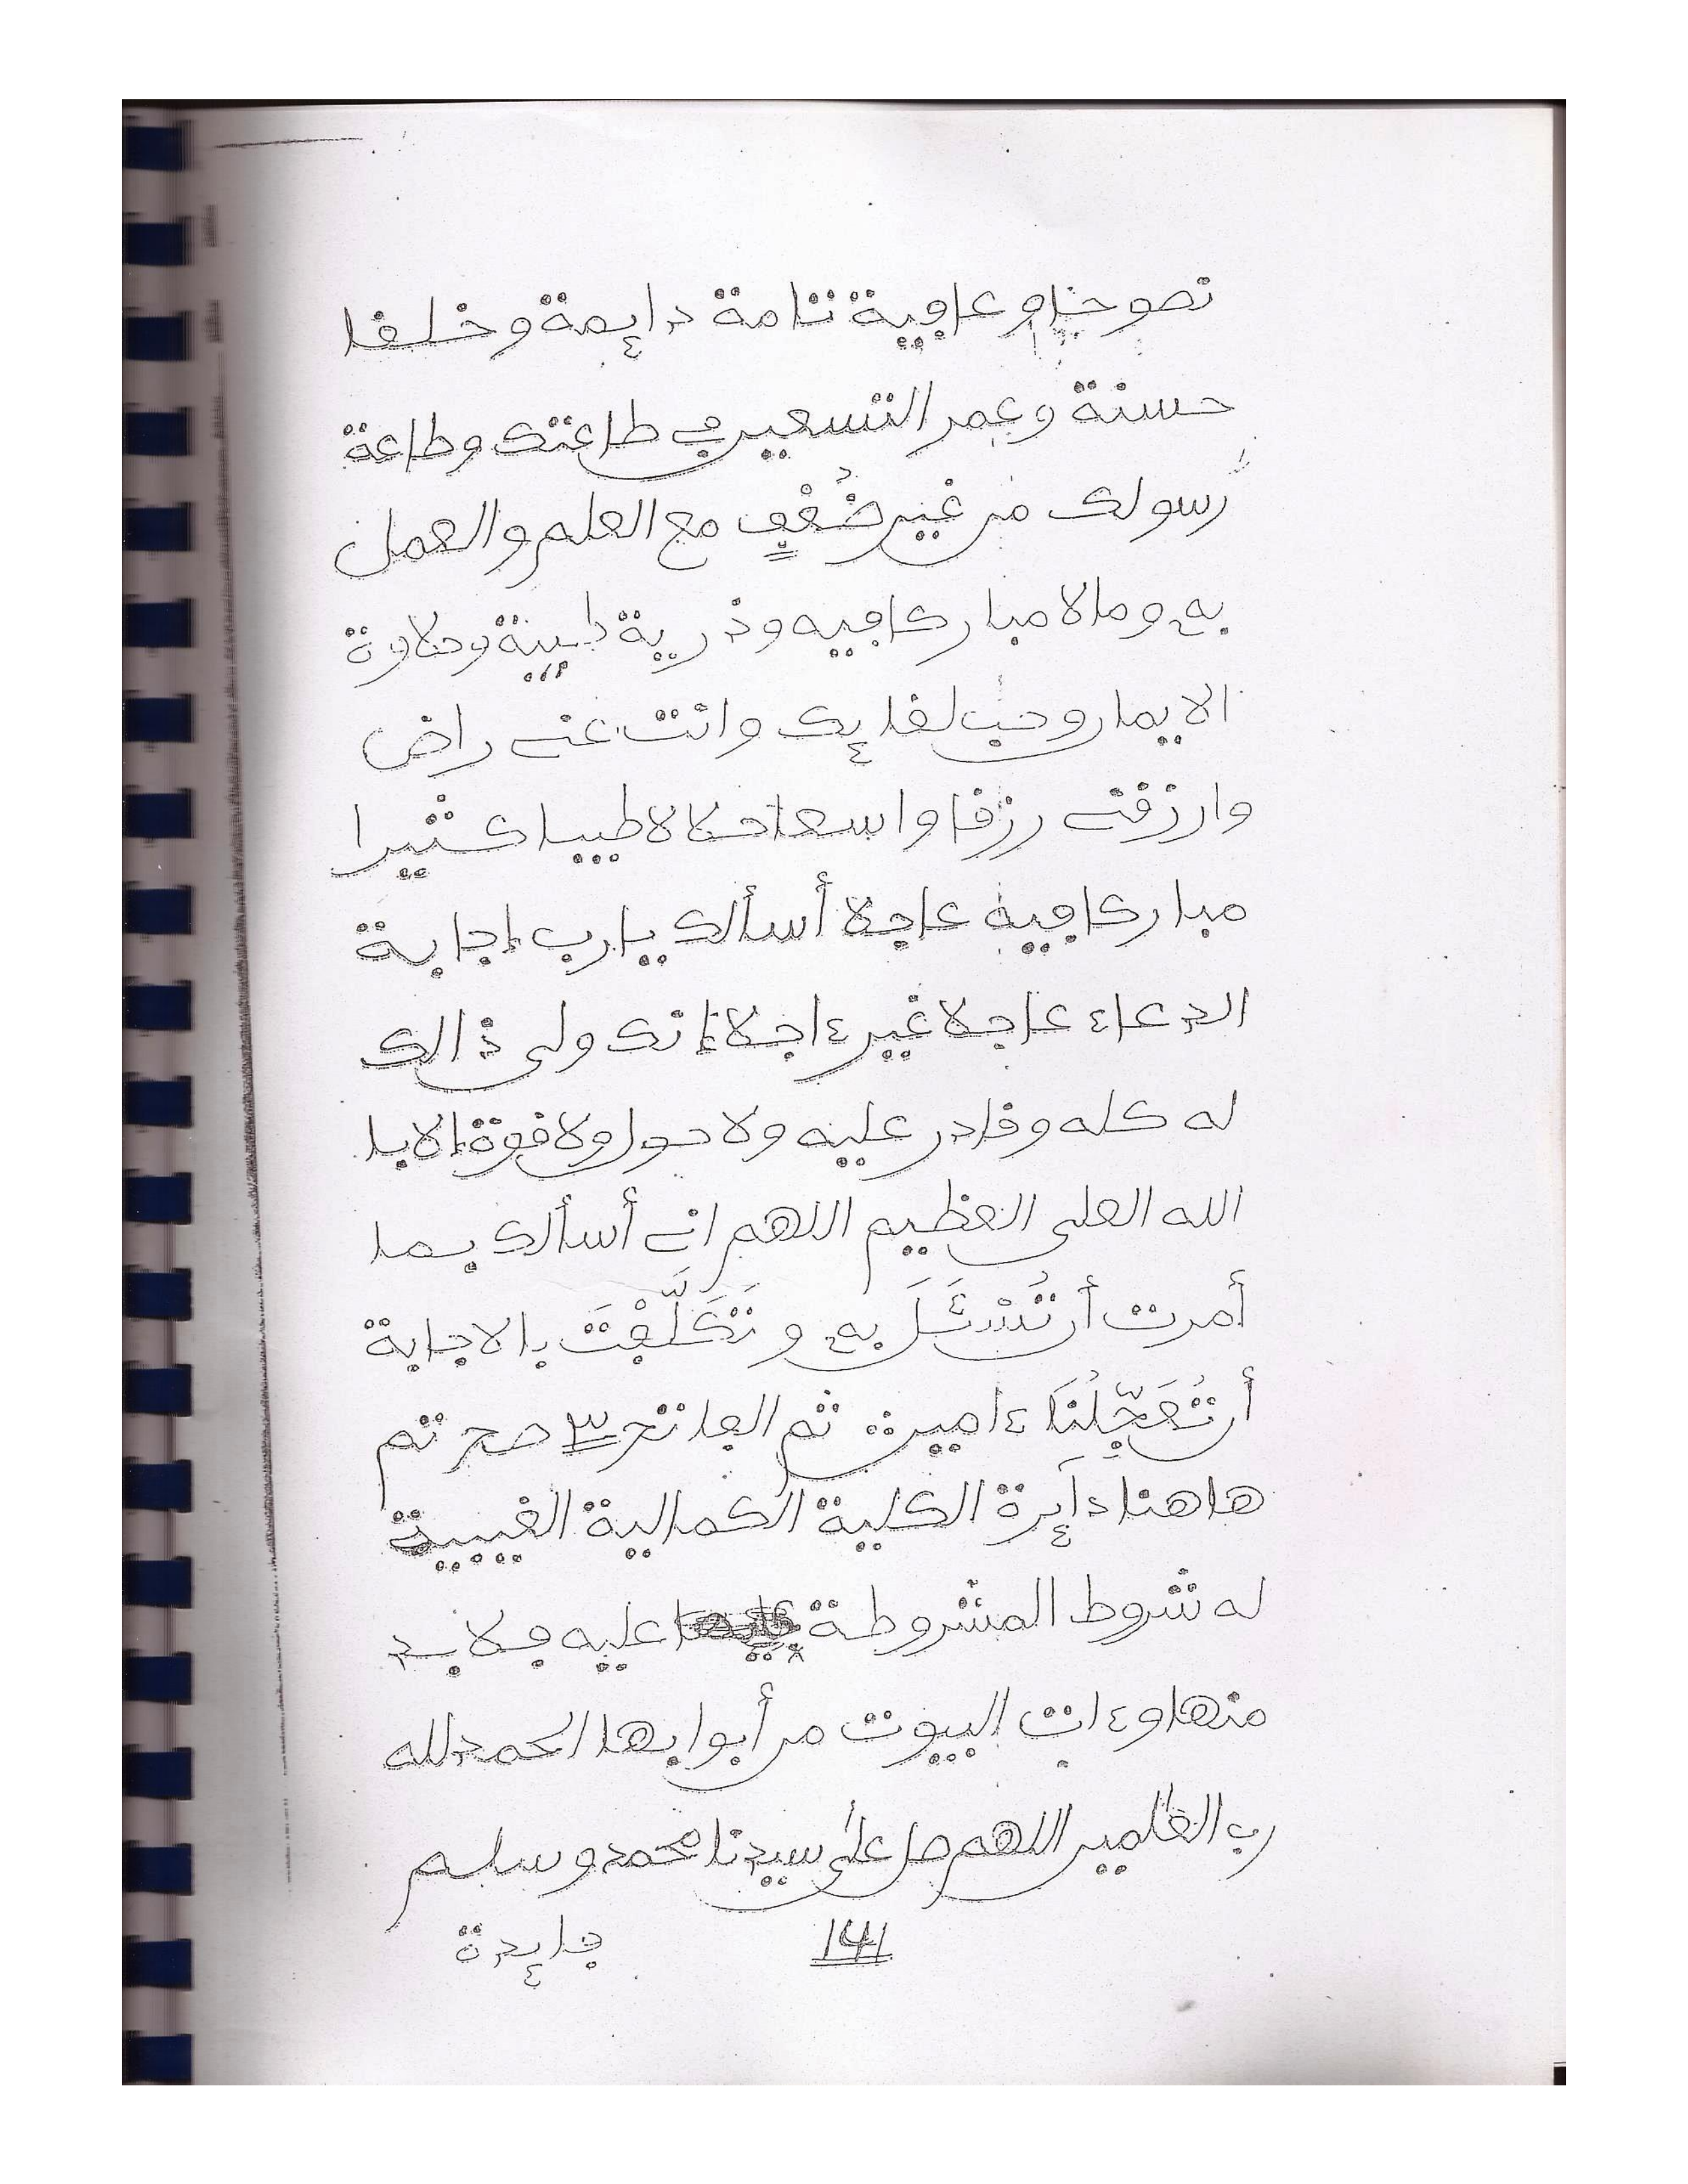 نصوحا وعافية تامة دايمة وخلفا
حسنة وعمر التسعين في طاعتك وطاعة
رسولك من غير ضُعْفٍ مع العلم والعمل
به ومالا مباركا فيه وذرية طيبة وحلاوة
الايمان وحب لقايك وانت عنى راض
وارزقنى رزقا واسعا حلالا طيبا كثيرا
مباركا فيه عاجلا أسألك يا رب إجابة
الدعاء عاجلا غير ءاجلا إنك ولي ذالك
له كله وقادر عليه ولا حول ولا قوة إلا با
الله العلي العظيم اللهم انى أسألك بما
أمرت أن تُسْئَلَ به وتَكَلَّفْتَ بالاجابة
أن تُعَجِّلَنَا ءامين ثم الفاتحة ٣ صح تم
هاهنا دآيرة الكلية الكمالية الغيبية
له شروط المشروطة عليه فلا بد
منها وءات البيوت من أبوابها الحمد لله
رب العٰلمين اللهم صل علىٰ سيدنا محمد وسلم
141 فايدة